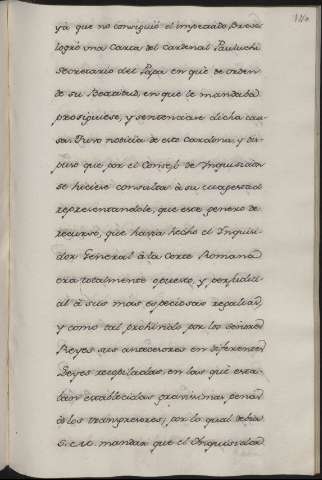 ya que no consiguió el impetrado Breve
logró una Carta del Cardenal Pauluchi
Secretario del Papa en que de orden
de su Beatitud, en que le mandaba
prosiguiese, y sentenciase dicha cau-
sa: Tuvo noticia de esto Cardona, y dis-
puso que por el Consejo de Inquisicion
se hiciese consulta à su magestad
representandole, que este genero de
recurso, que havia hecho el Inquisi-
dor General à la Corte Romana
era totalmente opuesto, y perjudici-
al à sus mas especiosas regalias,
y como tal prohivido por los señores
Reyes sus antecesores en diferentes
Leyes recopiladas, en las que esta-
ban establecidas gravisimas penas
à los transgresores; por lo qual debia
S. M. mandar que el Inquisidor